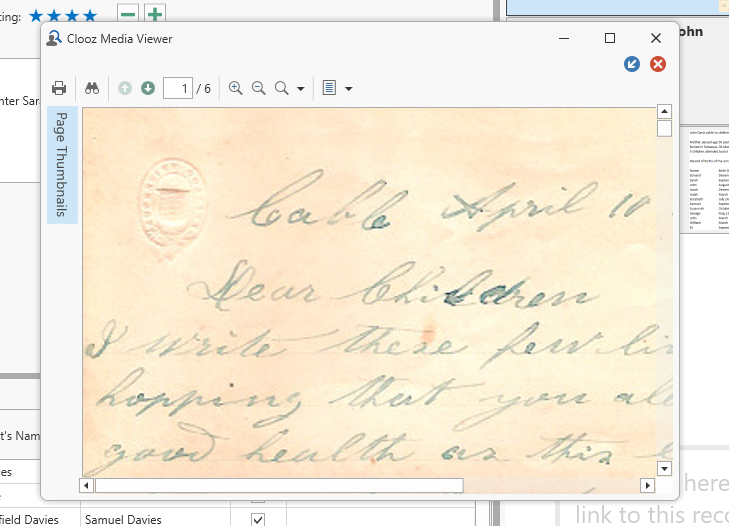 ting:
Clooz Media Viewer
ohn
nter Sar
1 / 6
Page Thumbnails
Cabb April 10
Dear Children
I write these few li
hopping that you al
good health as this
t's Nam
es
field Davies Samuel Davies
here
link to this reco